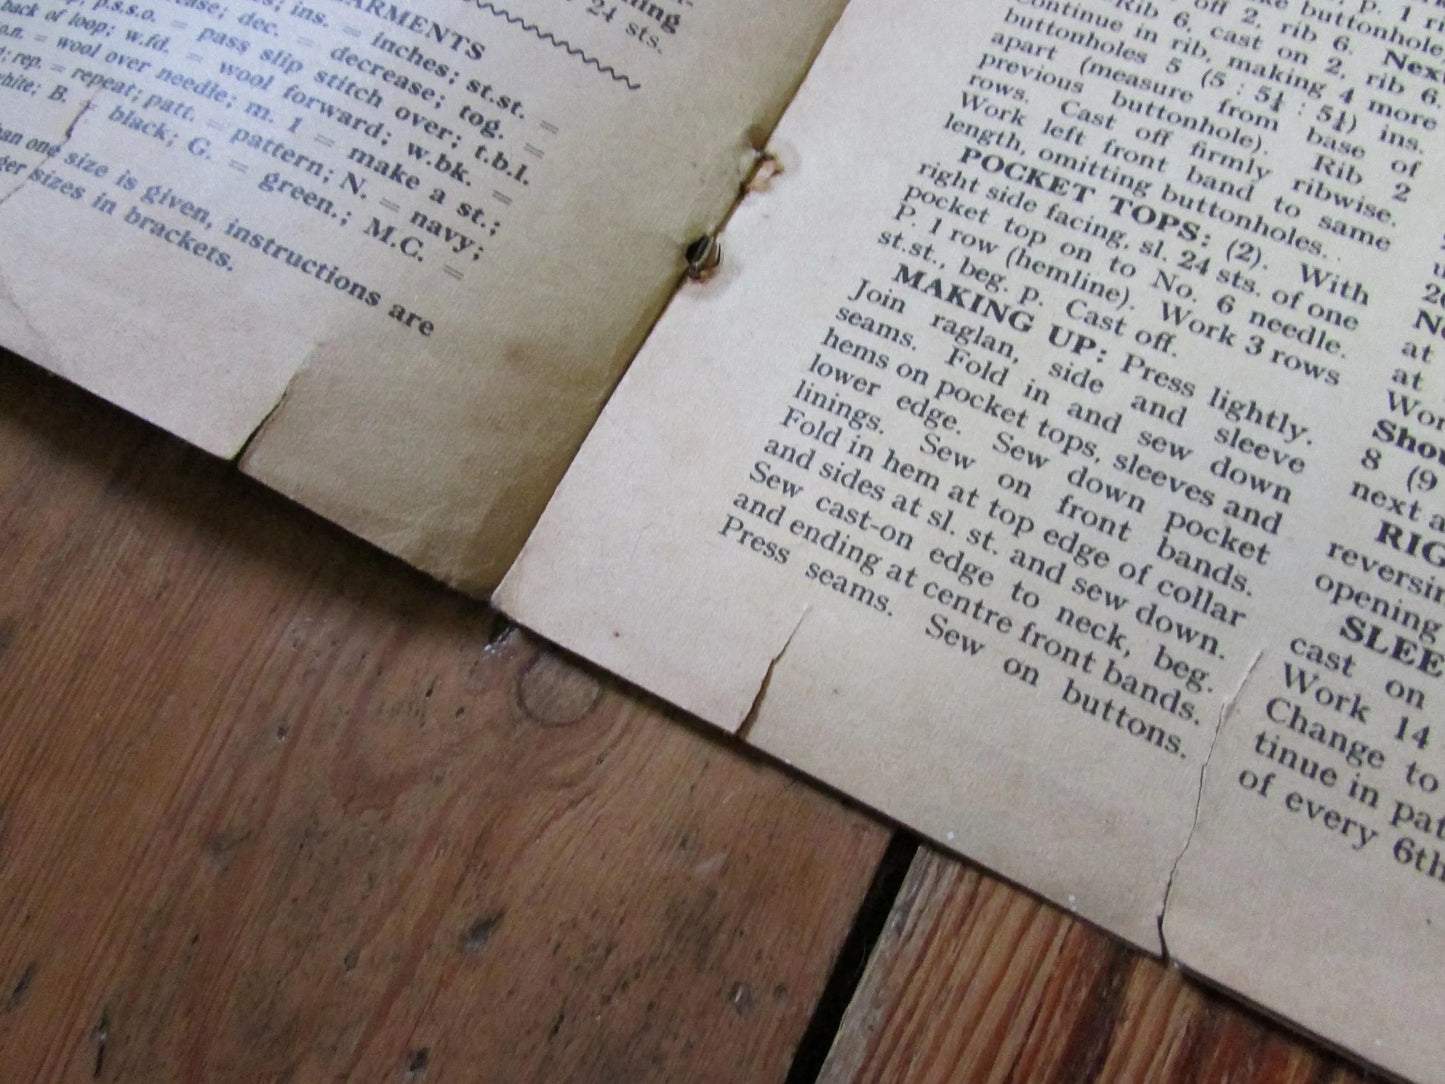 24 sts.
GARMENTS
ins. = inches; st.st. =
dec. = decrease; tog. =
p.s.s.o. = pass slip stitch over; t.b.l.
back of loop; w.fd. = wool forward; w.bk. =
= wool over needle; m. 1 = make a st.;
rep. = repeat; patt. = pattern; N. = navy;
B. = black; G. = green.; M.C. =
one size is given, instructions are
sizes in brackets.
P. 1
buttonhole
off 2, rib 6. Next
Rib 6, cast on 2, rib 6.
continue in rib, making 4 more
buttonholes 5 (5 : 5¼ : 5¼) ins.
apart (measure from base of
previous buttonhole). Rib 2
rows. Cast off firmly ribwise.
Work left front band to same
length, omitting buttonholes.
POCKET TOPS: (2). With
right side facing, sl. 24 sts. of one
pocket top on to No. 6 needle.
P. 1 row (hemline). Work 3 rows
st.st., beg. p. Cast off.
MAKING UP: Press lightly.
Join raglan, side and sleeve
seams. Fold in and sew down
hems on pocket tops, sleeves and
lower edge. Sew down pocket
linings. Sew on front bands.
Fold in hem at top edge of collar
and sides at sl. st. and sew down.
Sew cast-on edge to neck, beg.
and ending at centre front bands.
Press seams. Sew on buttons.
at
at
8 (9
next
opening
cast on
Work 14
Change to
tinue in
of every 6th